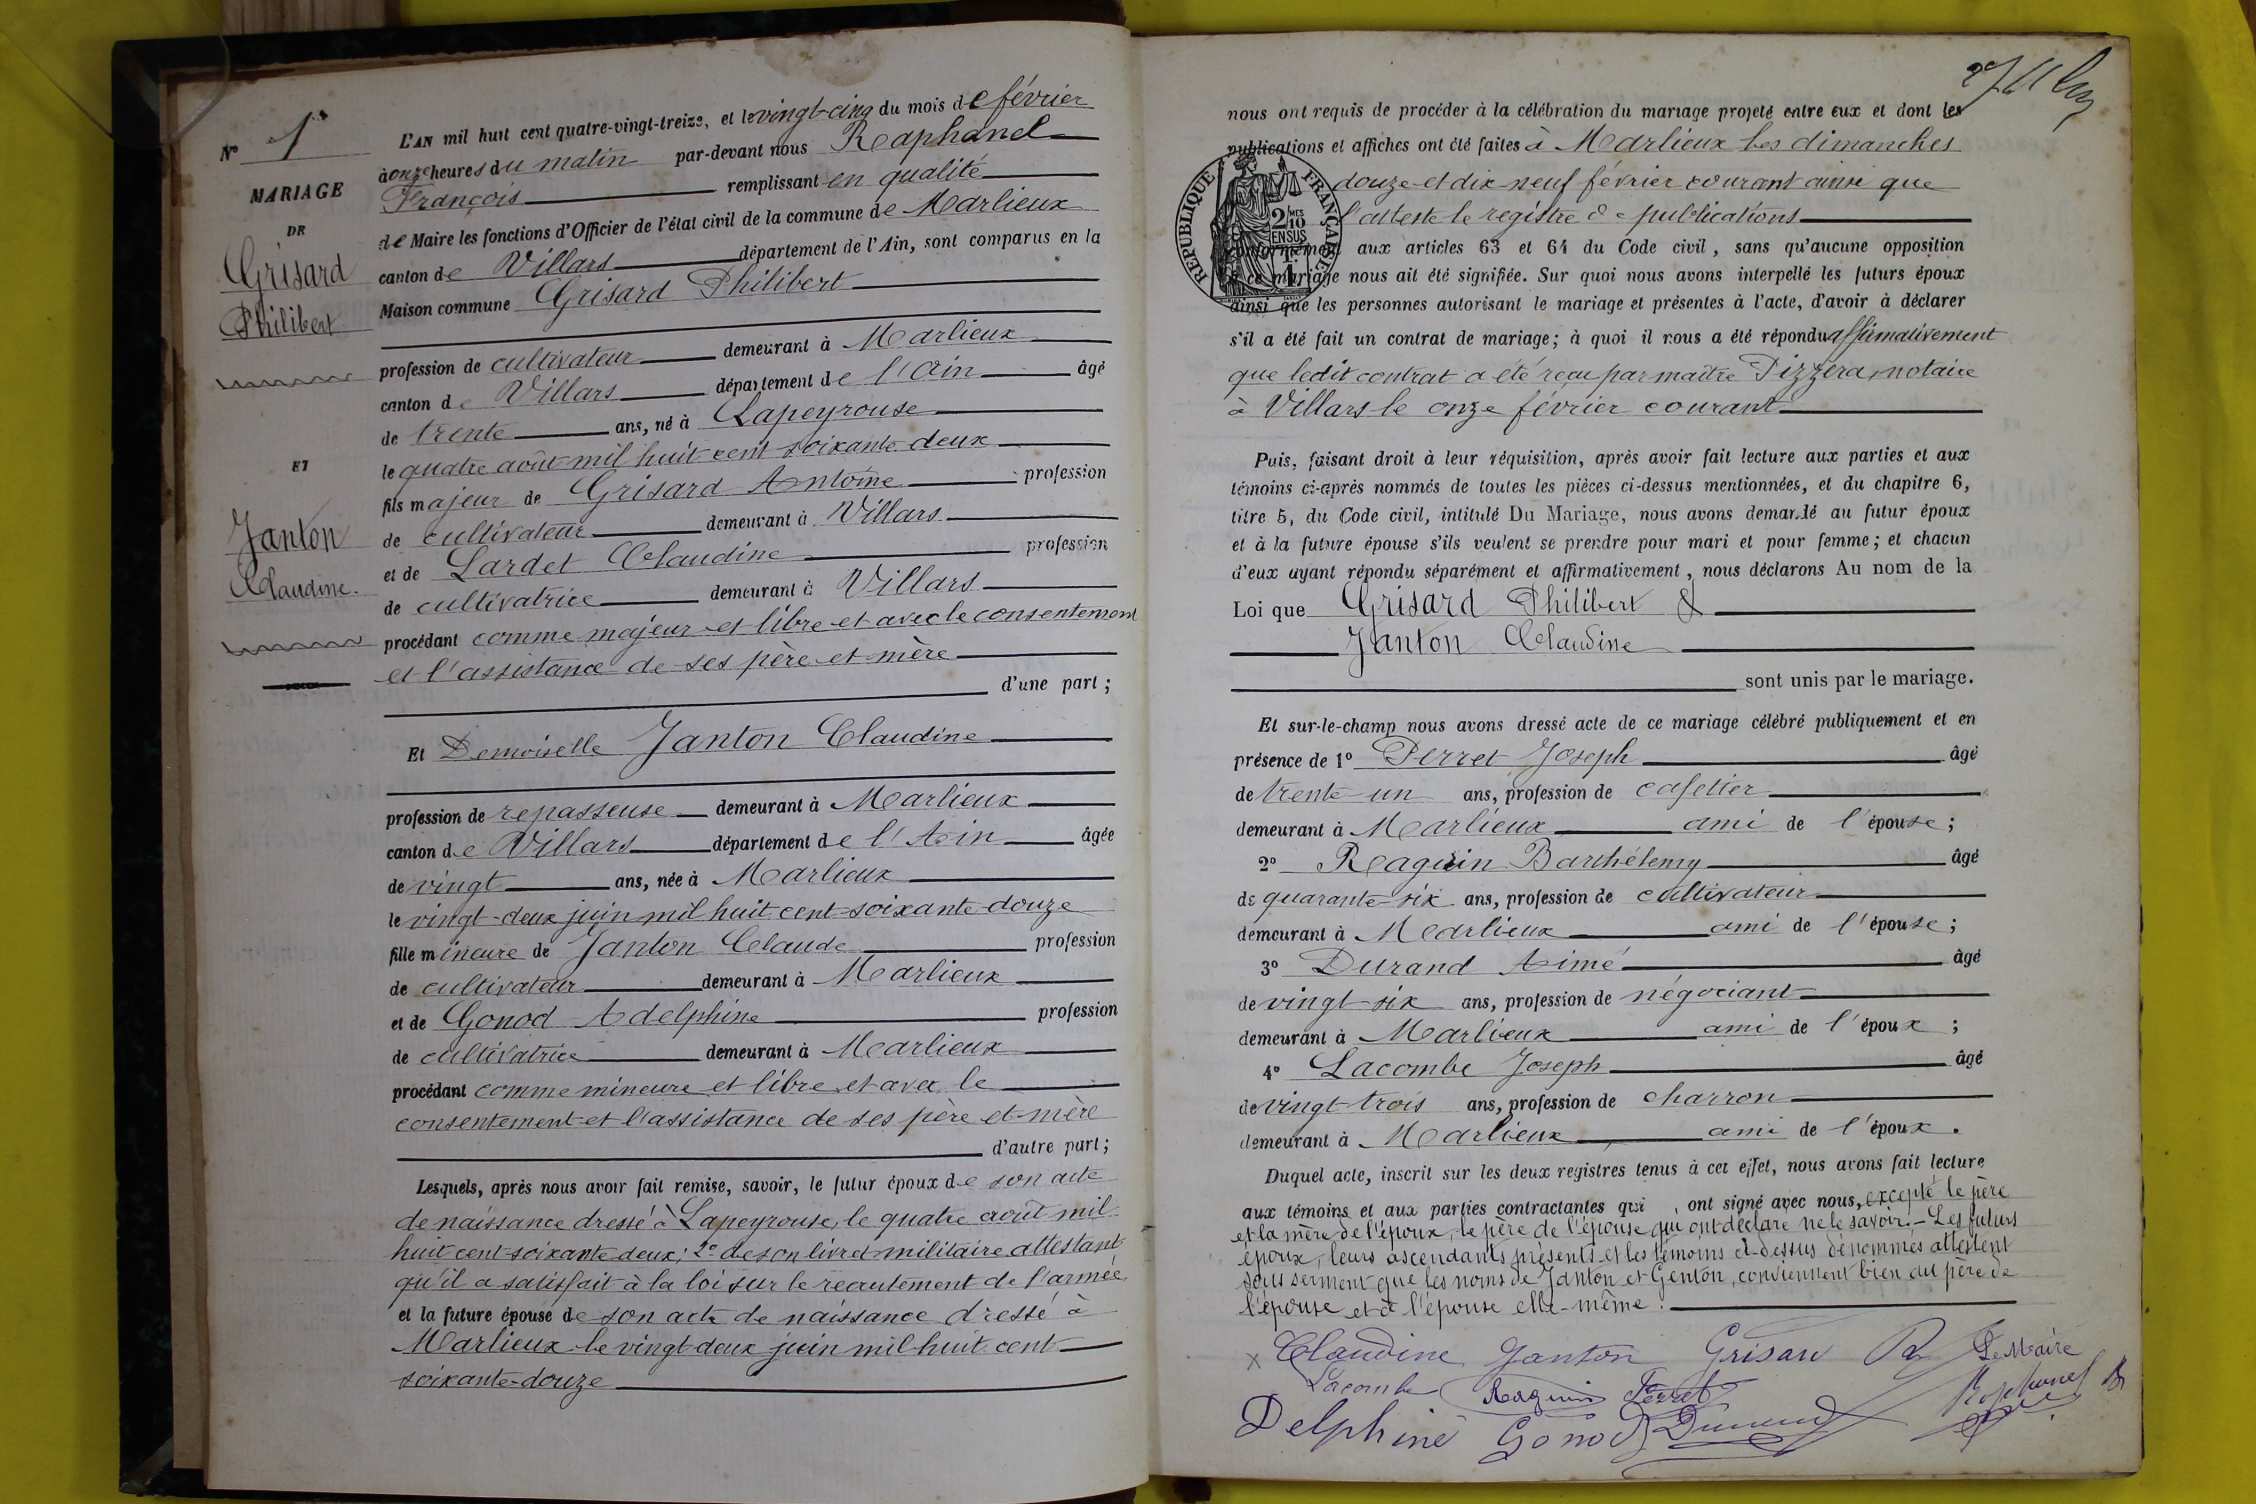 N° 1
MARIAGE
DE
Grisard
Philibert
ET
Janton
Claudine.
L'AN mil huit cent quatre-vingt-treize, et le vingt-cinq du mois de février
à onze heures du matin par-devant nous Raphanel
François remplissant en qualité
de Maire les fonctions d'Officier de l'état civil de la commune de Marlieux
canton de Villars département de l'Ain, sont comparus en la
Maison commune Grisard Philibert
profession de cultivateur demeurant à Marlieux
canton de Villars département de l'Ain âgé
de trente ans, né à Lapeyrouse
le quatre août mil huit cent soixante deux
fils majeur de Grisard Antoine profession
de cultivateur demeurant à Villars
et de Lardet Claudine profession
de cultivatrice demeurant à Villars
procédant comme majeur et libre et avec le consentement
et l'assistance de ses père et mère
d'une part ;
Et Demoiselle Janton Claudine
profession de repasseuse demeurant à Marlieux
canton de Villars département de l'Ain âgée
de vingt ans, née à Marlieux
le vingt-deux juin mil huit cent soixante-douze
fille mineure de Janton Claude profession
de cultivateur demeurant à Marlieux
et de Gonod Adelphine profession
de cultivatrice demeurant à Marlieux
procédant comme mineure et libre et avec le
consentement et l'assistance de ses père et mère
d'autre part ;
Lesquels, après nous avoir fait remise, savoir, le futur époux de son acte
de naissance dressé à Lapeyrouse, le quatre août mil
huit cent soixante deux ; 2° de son livret militaire attestant
qu'il a satisfait à la loi sur le recrutement de l'armée
et la future épouse de son acte de naissance dressé à
Marlieux le vingt-deux juin mil huit cent
soixante-douze
nous ont requis de procéder à la célébration du mariage projeté entre eux et dont les
publications et affiches ont été faites à Marlieux les dimanches
douze et dix neuf février courant ainsi que
l'atteste le registre de publications
conformément aux articles 63 et 64 du Code civil, sans qu'aucune opposition
à ce mariage nous ait été signifiée. Sur quoi nous avons interpellé les futurs époux
ainsi que les personnes autorisant le mariage et présentes à l'acte, d'avoir à déclarer
s'il a été fait un contrat de mariage ; à quoi il nous a été répondu affirmativement
que ledit contrat a été reçu par maître Pizzera, notaire
à Villars le onze février courant
RÉPUBLIQUE FRANÇAISE
2 MES 10
EN SUS
1
Puis, faisant droit à leur réquisition, après avoir fait lecture aux parties et aux
témoins ci-après nommés de toutes les pièces ci-dessus mentionnées, et du chapitre 6,
titre 5, du Code civil, intitulé Du Mariage, nous avons demandé au futur époux
et à la future épouse s'ils veulent se prendre pour mari et pour femme ; et chacun
d'eux ayant répondu séparément et affirmativement, nous déclarons Au nom de la
Loi que Grisard Philibert &
Janton Claudine
sont unis par le mariage.
Et sur-le-champ nous avons dressé acte de ce mariage célébré publiquement et en
présence de 1° Perret Joseph âgé
de trente-un ans, profession de cafetier
demeurant à Marlieux ami de l'épouse ;
2° Raguin Barthélemy âgé
de quarante-six ans, profession de cultivateur
demeurant à Marlieux ami de l'épouse ;
3° Durand Aimé âgé
de vingt-six ans, profession de négociant
demeurant à Marlieux ami de l'époux ;
4° Lacombe Joseph âgé
de vingt trois ans, profession de charron
demeurant à Marlieux ami de l'époux.
Duquel acte, inscrit sur les deux registres tenus à cet effet, nous avons fait lecture
aux témoins et aux parties contractantes qui, ont signé avec nous, excepté le père
et la mère de l'époux, le père de l'épouse qui ont déclaré ne le savoir. – Les futurs
époux, leurs ascendants présents et les témoins ci-dessus dénommés attestent
sous serment que les noms de Janton et Genton, conviennent bien au père de
l'épouse et à l'épouse elle-même.
x Claudine Janton Grisard Le Maire
Lacombe Raguin Perret Raphanel
Delphine Gonod Durand